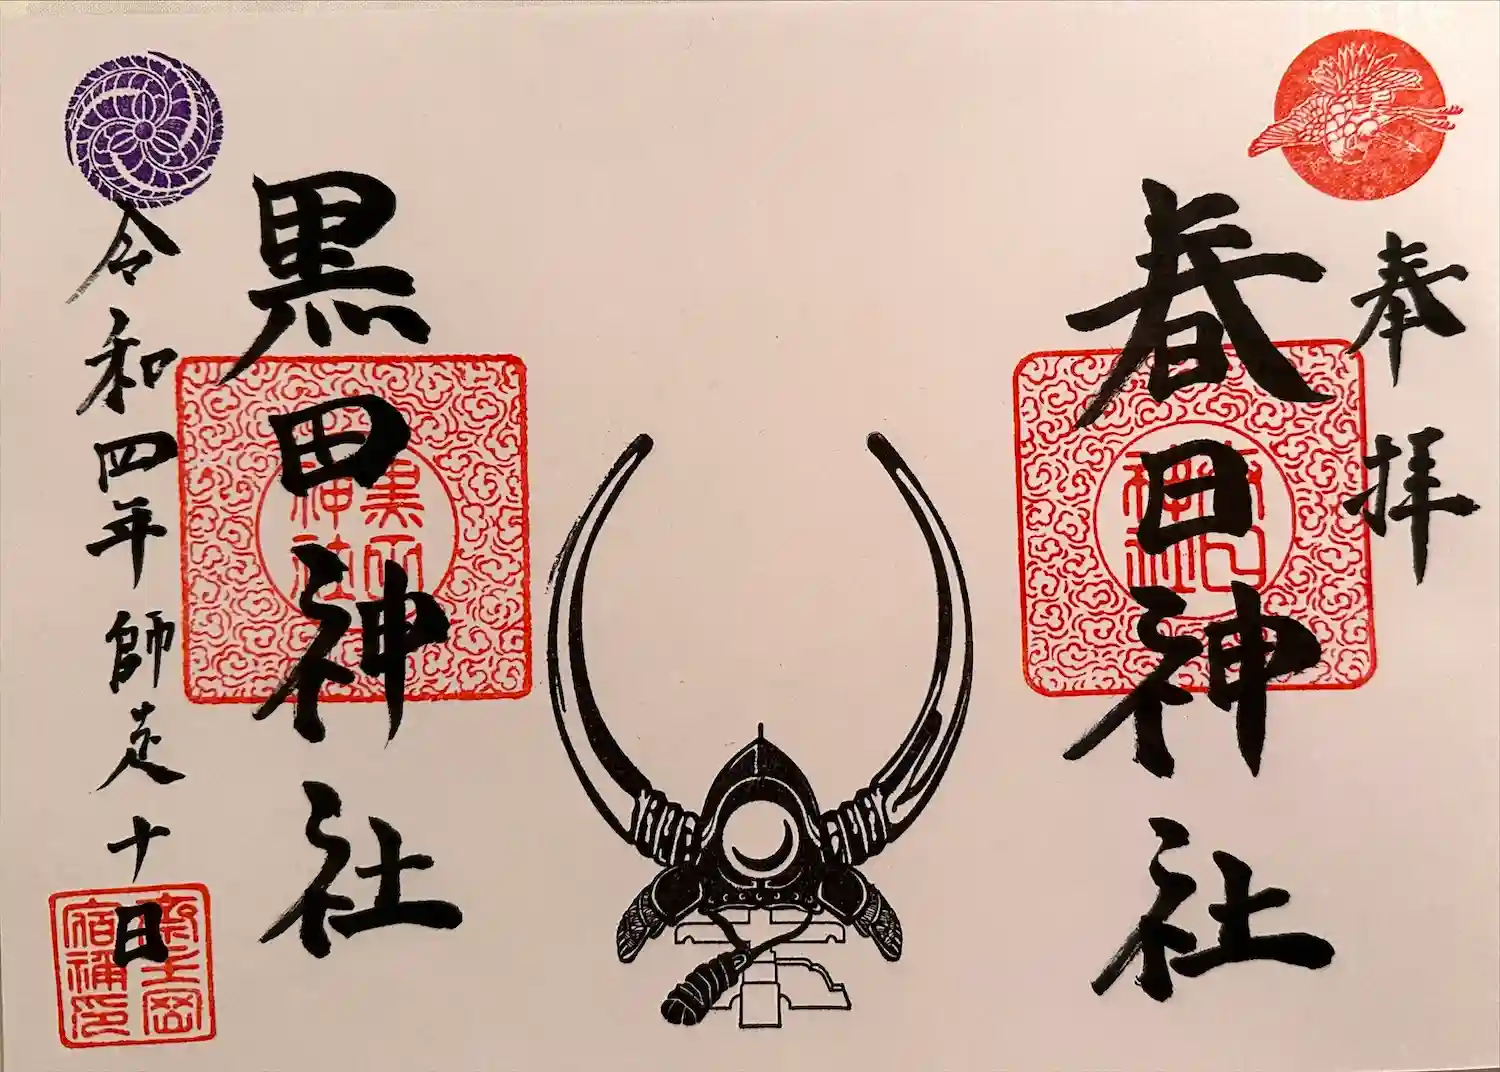 奉拝
春日神社
黒田神社
令和四年師走十日
黒田神社